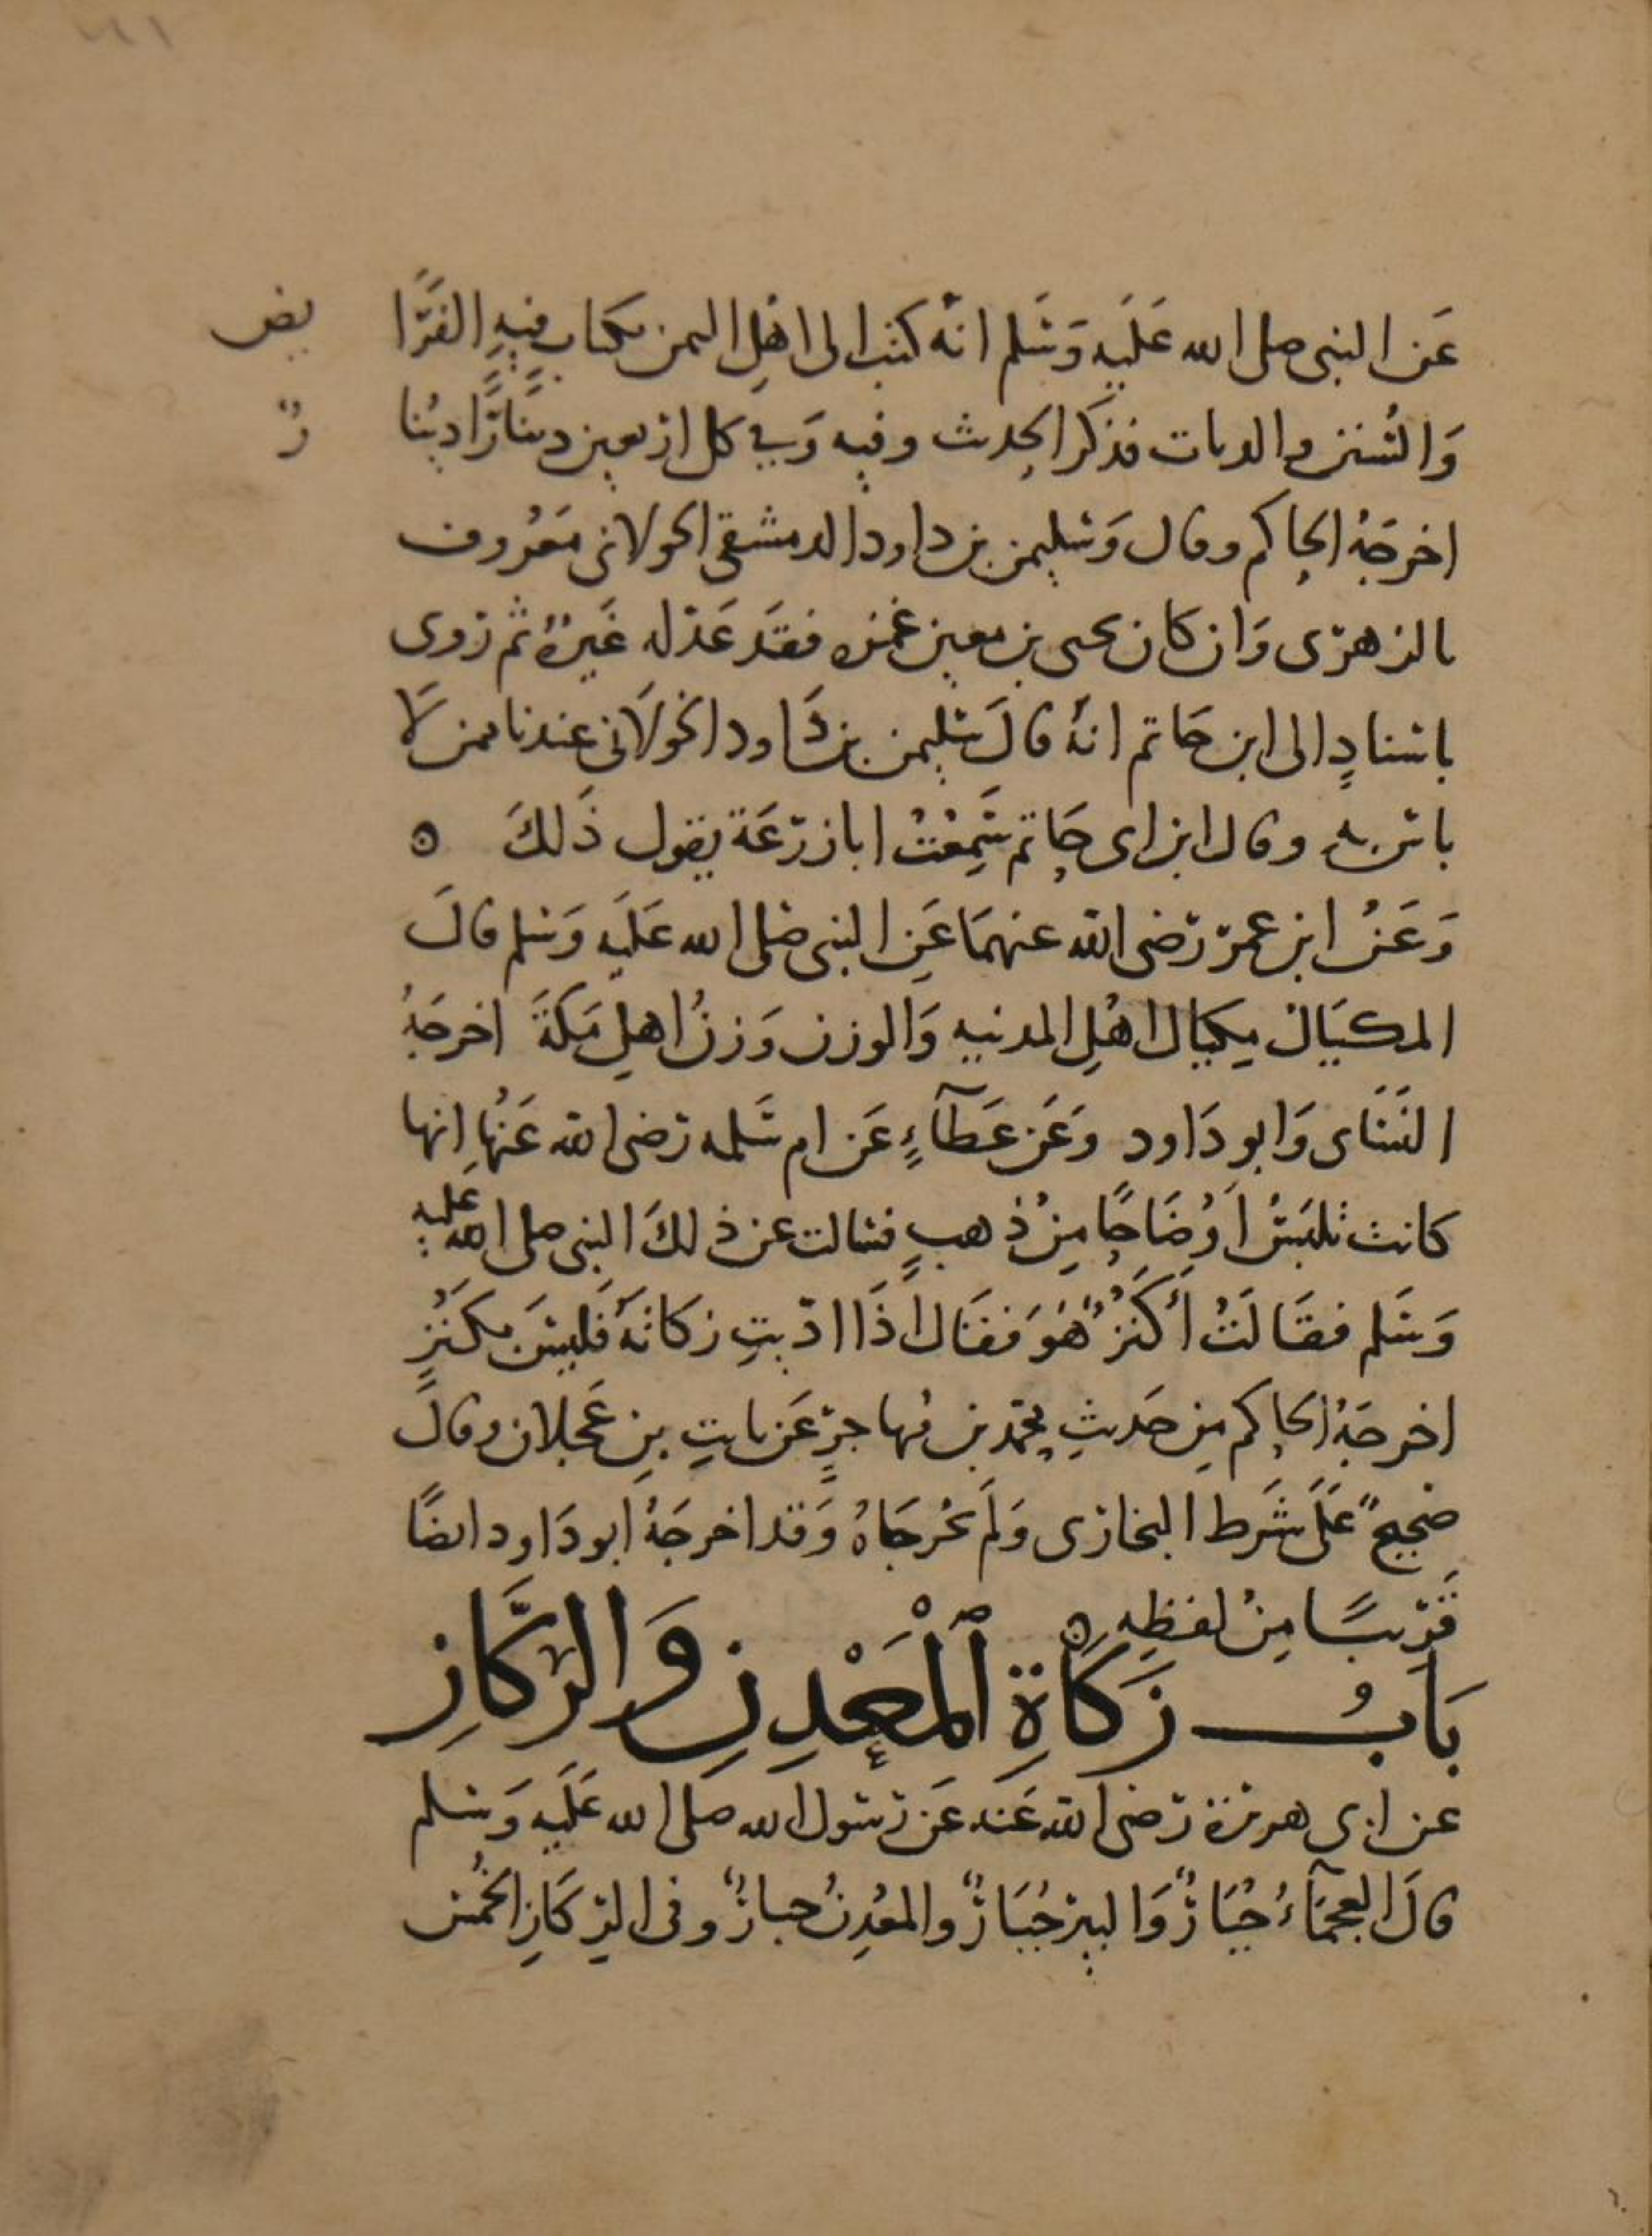 عَن النبى صلى الله عَلَيه وَسَلم انه كتب الى اهْلِ اليمن بكتاب فيهِ الفَرَا يض
وَالسُنن والديات فذكر الحديث وفيه وَفي كل اربعين دينَارًا دينا رٌ
اخرجَهُ الحاكم وقال وَسليمن بن داود الدمشقى الخولانى مَعْروف
بالزهرى وَان كان يحيى بن معين غمزه فقَد عَدله غَيرهُ ثم روى
باسنادٍ الى ابن حَاتم انهُ قالَ سليمن بن دَاود الخولَانى عندنا ممن لا
باس به وقال ابن ابى حَاتم سَمِعْتُ ابا زرعَة يقول ذَلكَ ه
وَعَنْ ابن عمر رضى الله عنهمَا عَنِ النبى صَلى الله عَلَيه وَسلم قالَ
المكيَال مِكيال اهْلِ المدينه وَالوزن وَزنُ اهلِ مَكةَ اخرجَهُ
النسَاى وَابو دَاود وعَن عَطآءٍ عَن ام سَلمه رضى الله عَنْها انها
كانت تلبَسْ اَوْضَاحًا مِنْ ذهبٍ فسالت عن ذلكَ النبى صلى الله عليه
وَسَلم فقَالَتْ أَكَنْزٌ هُوَ فقَال اذَا ادّيتِ زكاتَهُ فَليسَ بكَنْزٍ
اخرجَهُ الحاكم مِن حَديثِ محمد بن مُهاجرٍ عَن ثابتِ بنِ عَجلان وقالَ
صَحيحٌ عَلَى شَرط البخارى وَلم يخرجَاهُ وَقد اخرجَهُ ابو دَاود ايضًا
قَريبًا مِنْ لفظِه ه
بَابُ زَكَاةِ اَلْمَعْدِنِ وَالرِّكَازِ
عن ابى هريرة رَضى الله عَنه عَن رَسول الله صلى الله عَلَيه وَسلم
قالَ العجمَآءُ جُبَارٌ وَالبير جُبَارٌ والمعْدِنُ جبارٌ وفى الرِّكَازِ الخُمس